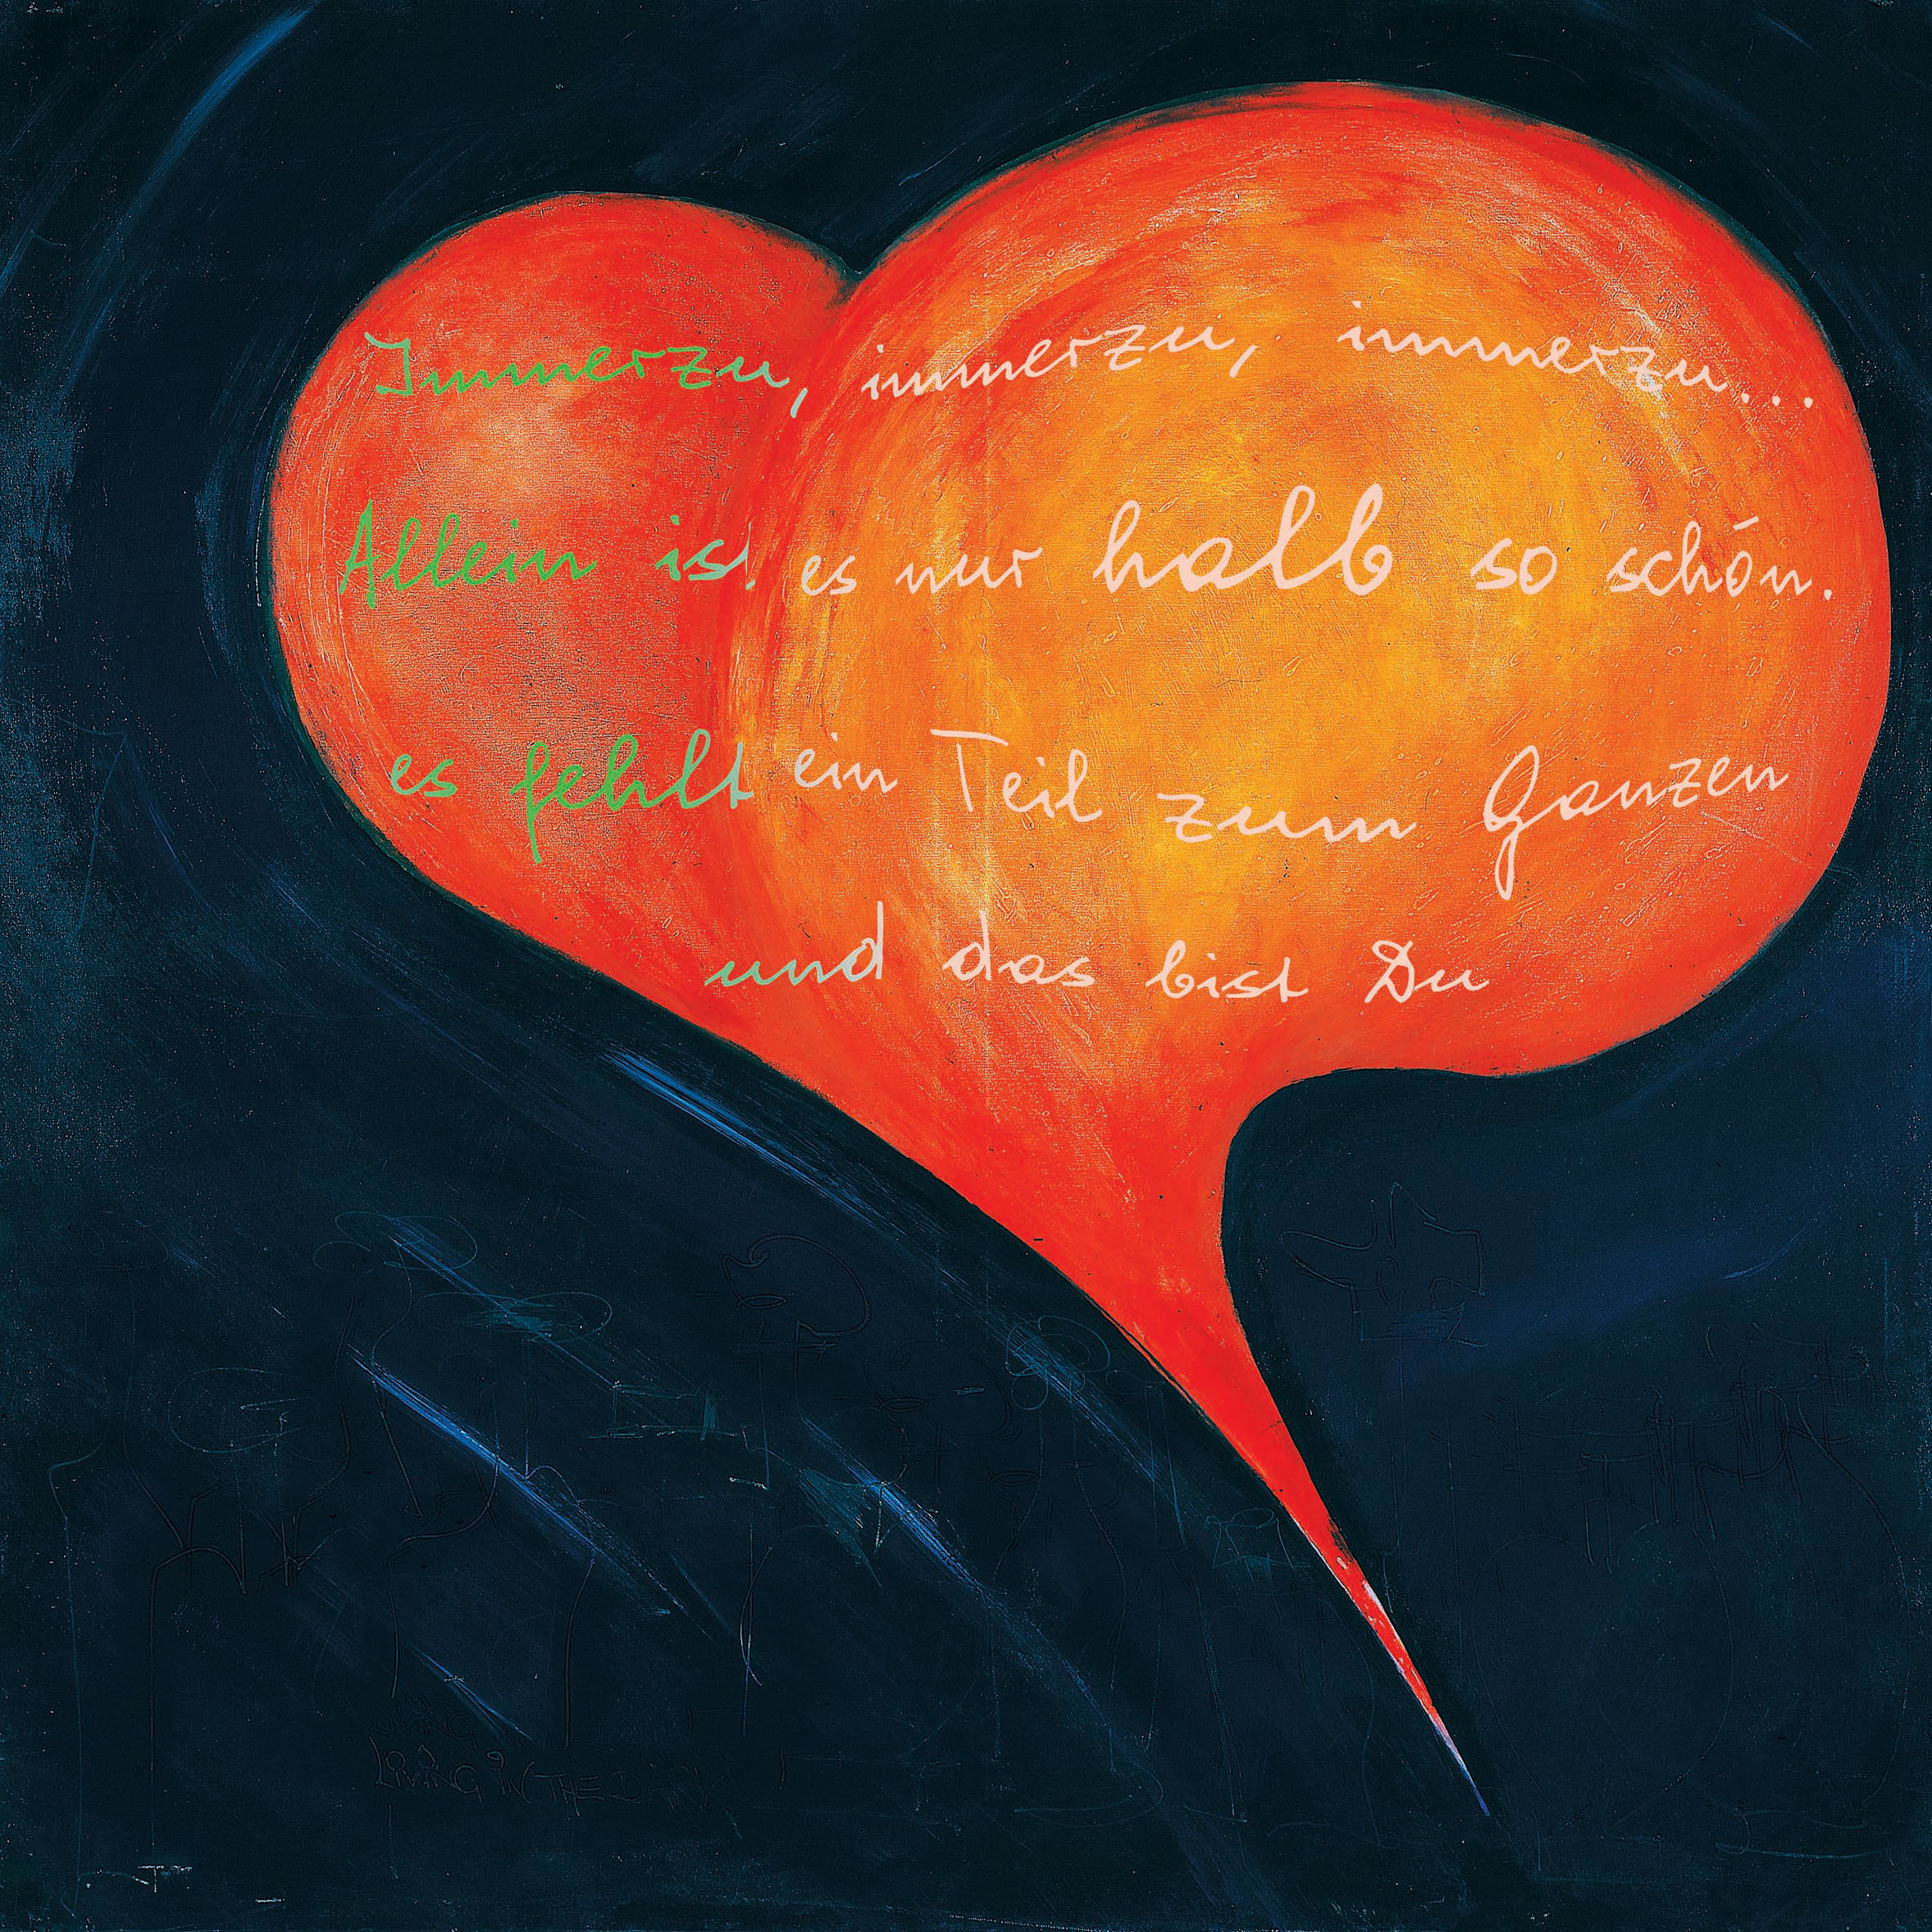 Immerzu, immerzu, immerzu...
Allein ist es nur halb so schön.
es fehlt ein Teil zum Ganzen
und das bist Du
LIVING
LIVING IN THE